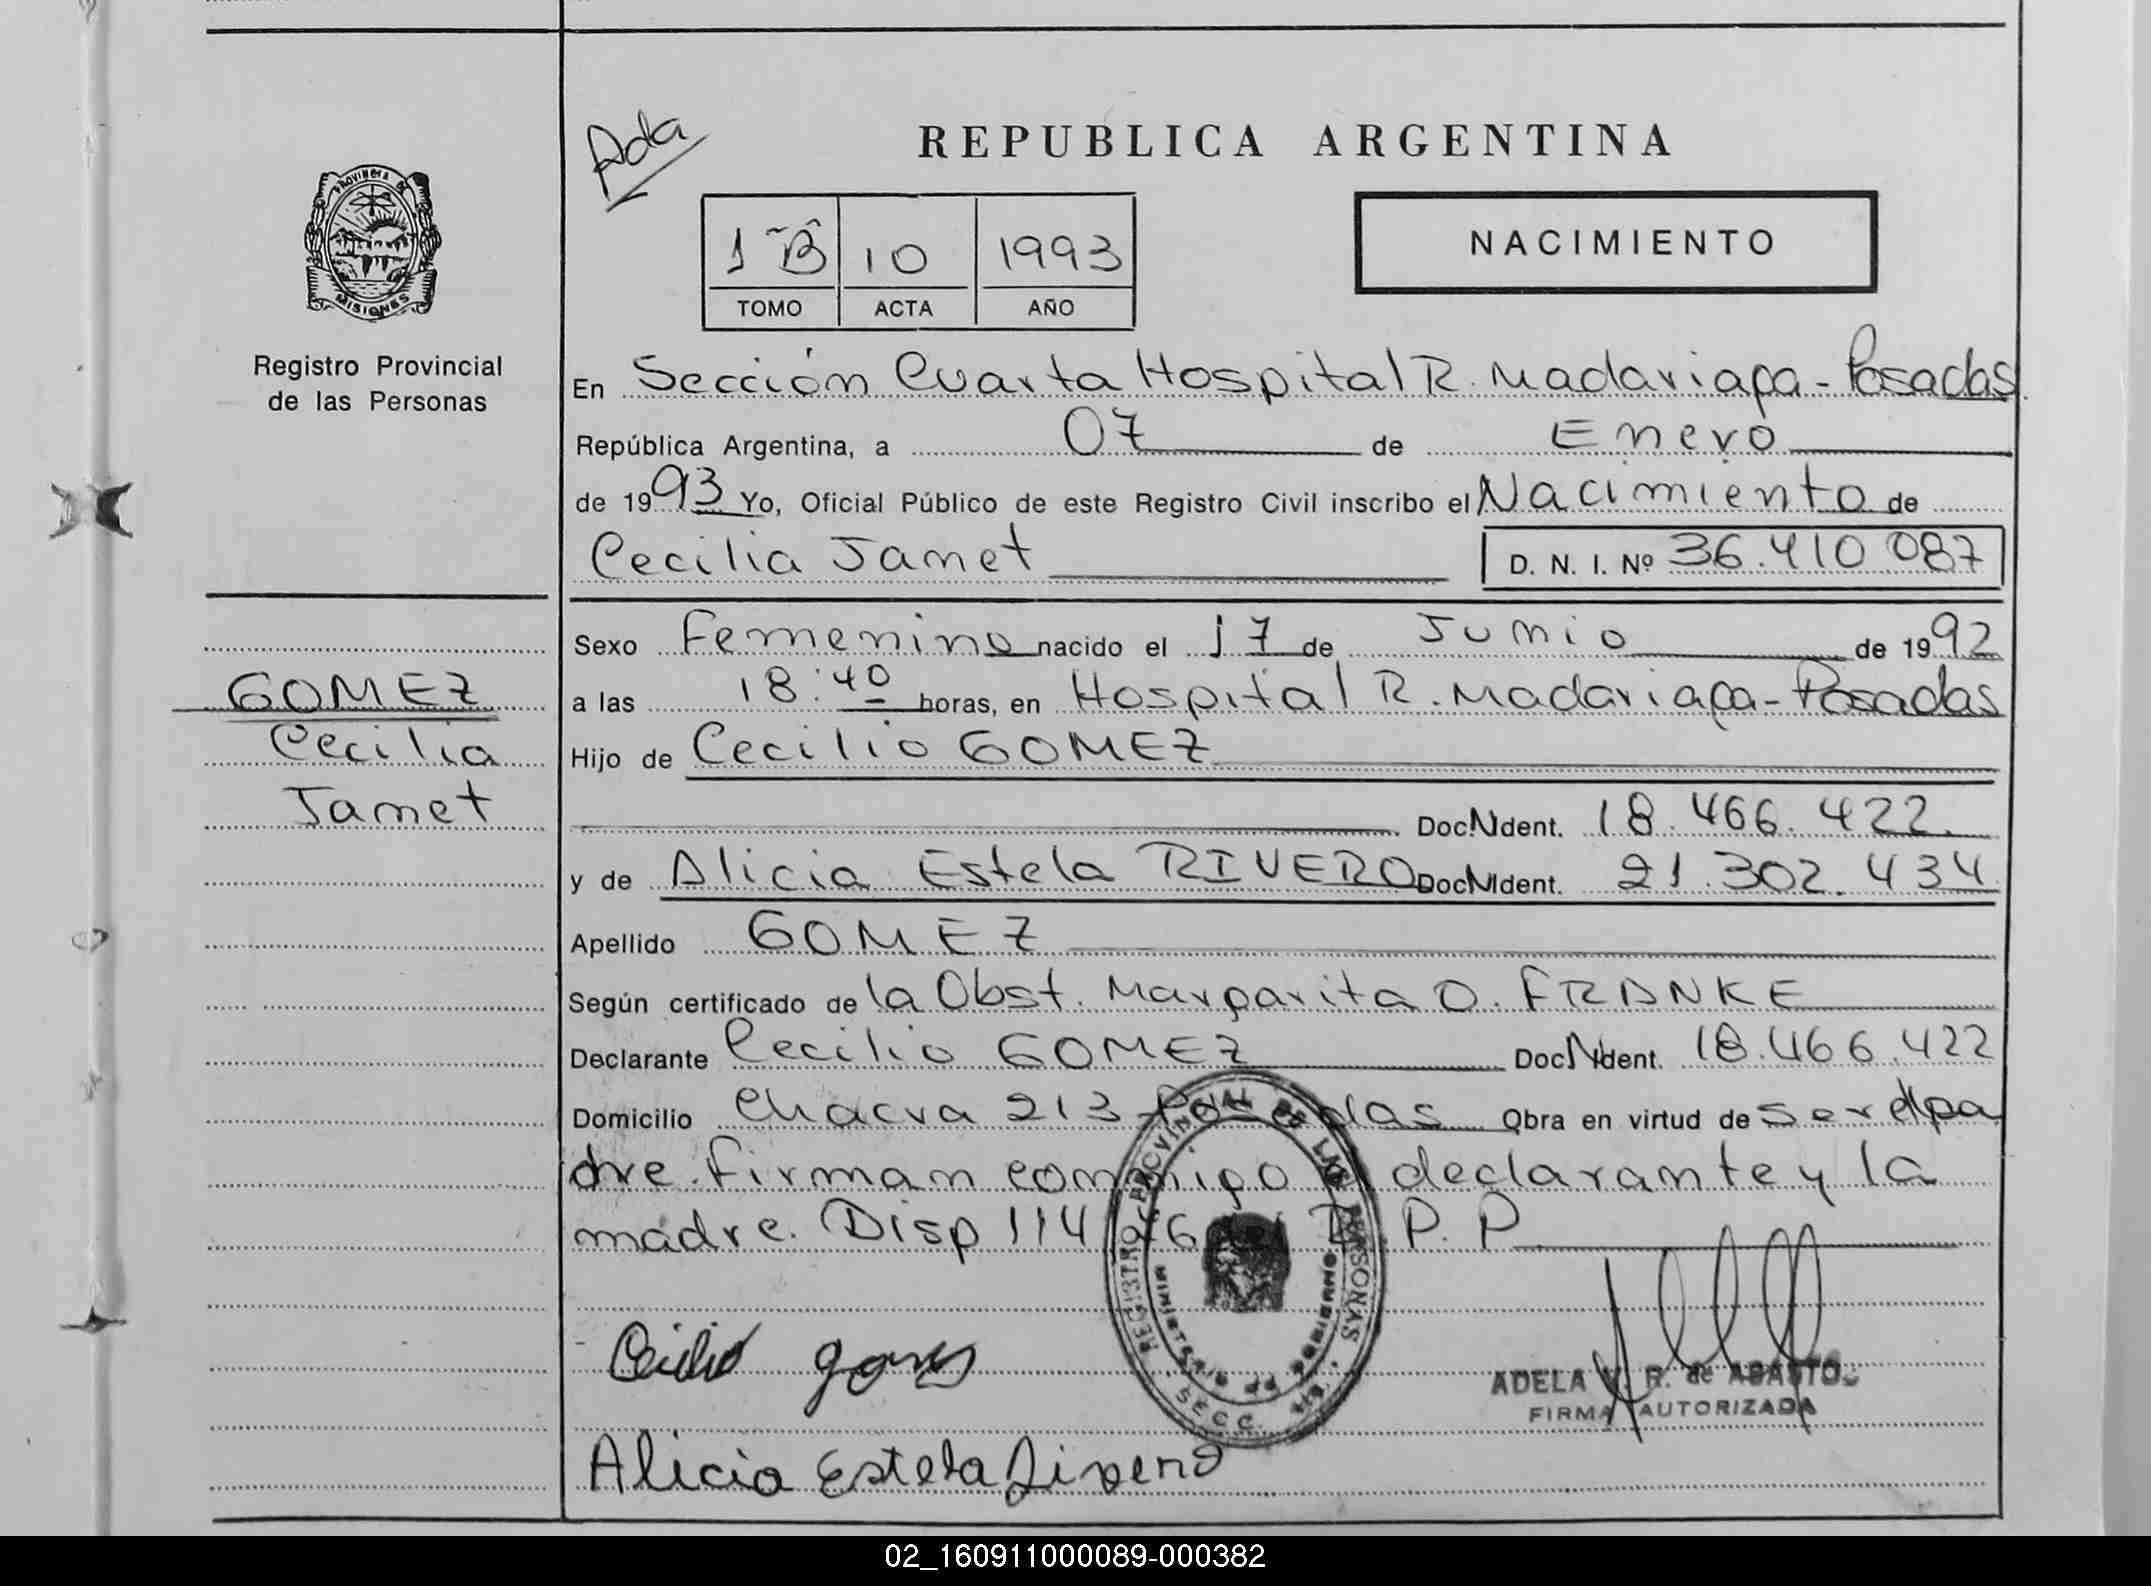 Ada
REPUBLICA ARGENTINA
PROVINCIA DE
MISIONES
1 B 10 1993
TOMO ACTA AÑO
NACIMIENTO
Registro Provincial
de las Personas
En Sección Cuarta Hospital R. Madariaga - Posadas
República Argentina, a 07 de Enero
de 1993 Yo, Oficial Público de este Registro Civil inscribo el Nacimiento de
Cecilia Janet D. N. I. Nº 36.410 087
Sexo Femenino nacido el 17 de Junio de 1992
GOMEZ
Cecilia
Janet
a las 18:40 horas, en Hospital R. Madariaga - Posadas
Hijo de Cecilio GOMEZ
Doc. Ident. 18.466.422
y de Alicia Estela RIVERO Doc. Ident. 21.302.434
Apellido GOMEZ
Según certificado de la Obst. Margarita O. FRANKE
Declarante Cecilio GOMEZ Doc. Ident. 18.466.422
Domicilio Chacra 213 - Posadas Obra en virtud de ser el pa
dre. Firman conmigo el declarante y la
madre. Disp 114 P. P.
REGISTRO PROVINCIAL DE LAS PERSONAS
MINISTERIO DE GOBIERNO
SECC.
Cecilio gomes
ADELA V. R. de ABASTO
FIRMA AUTORIZADA
Alicia Estela Rivero
02_160911000089-000382